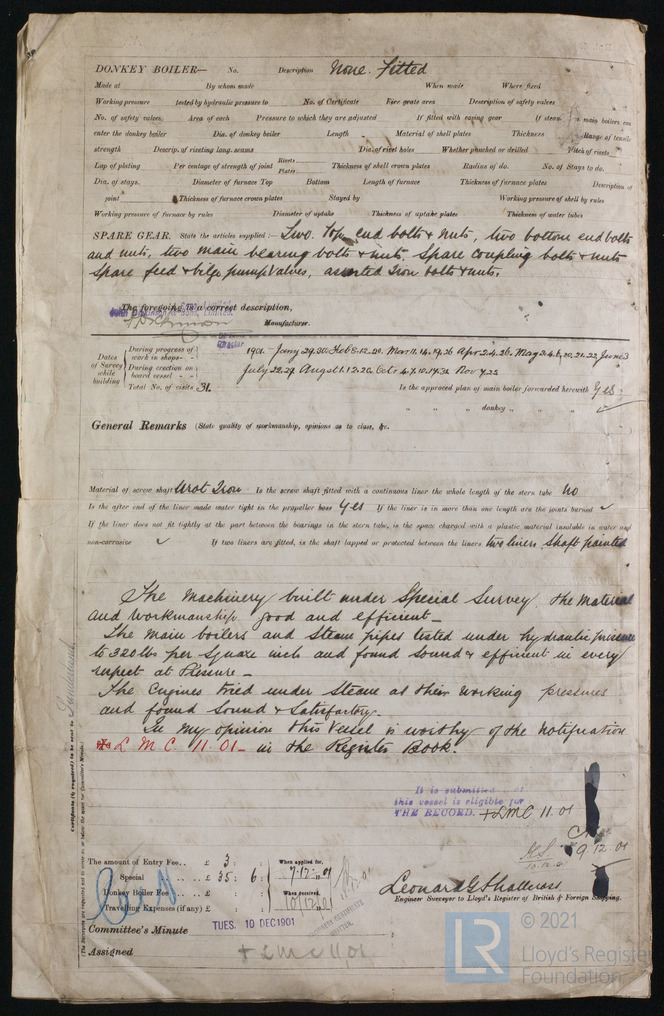 DONKEY BOILER— No. Description None Fitted
Made at By whom made When made Where fixed
Working pressure tested by hydraulic pressure to No. of Certificate Fire grate area Description of safety valves
No. of safety valves Area of each Pressure to which they are adjusted If fitted with easing gear If steam main boilers can
enter the donkey boiler Dia. of donkey boiler Length Material of shell plates Thickness Range of tensile
strength Descrip. of riveting long. seams Dia. of rivet holes Whether punched or drilled Pitch of rivets
Lap of plating Per centage of strength of joint Rivets Plates Thickness of shell crown plates Radius of do. No. of Stays to do.
Dia. of stays. Diameter of furnace Top Bottom Length of furnace Thickness of furnace plates Description of
joint Thickness of furnace crown plates Stayed by Working pressure of shell by rules
Working pressure of furnace by rules Diameter of uptake Thickness of uptake plates Thickness of water tubes
SPARE GEAR. State the articles supplied:— Two Top end bolts & nuts, two bottom end bolts
and nuts, two main bearing bolts & nuts, Spare coupling bolts & nuts
Spare feed & bilge pump valves, assorted Iron bolts & nuts.
The foregoing is a correct description,
Manufacturer.
Dates of Survey while building
During progress of work in shops - - 1901 - Jany 29.30 Feb 6.12.20. Mar 11.14.19.26 Apr 2.4.26. May 2.4.6.10.21.22 June 3
During erection on board vessel - - July 22.29 Augst 1.12.26. Octr 4.7.10.14.31 Nov 7.22
Total No. of visits 31. Is the approved plan of main boiler forwarded herewith Yes
" " " donkey " " "
General Remarks (State quality of workmanship, opinions as to class, &c.
Material of screw shaft Wrot Iron Is the screw shaft fitted with a continuous liner the whole length of the stern tube No
Is the after end of the liner made water tight in the propeller boss Yes If the liner is in more than one length are the joints burned ✓
If the liner does not fit tightly at the part between the bearings in the stern tube, is the space charged with a plastic material insoluble in water and
non-corrosive ✓ If two liners are fitted, is the shaft lapped or protected between the liners two liners shaft painted
The Machinery built under Special Survey the Material
and Workmanship good and efficient—
The Main boilers and Steam pipes tested under hydraulic pressure
to 320 lbs per Square inch and found Sound & efficient in every
respect at Pressure—
The Engines tried under Steam at their working pressures
and found Sound & Satisfactory.
In my opinion this Vessel is worthy of the notification
L M C 11.01— in the Register Book.
It is submitted
this vessel is eligible for
THE RECORD. + LMC 11 01
9.12.01
Certificate (if required) to be sent to Sunderland
The amount of Entry Fee.. £ 3 : : When applied for,
Special .. .. £ 35 : 6 : 7.12.01
Donkey Boiler Fee .. .. £ : : When received,
Travelling Expenses (if any) £ : : 10/12/01
Leonard G Shallcross
Engineer Surveyor to Lloyd's Register of British & Foreign Shipping.
Committee's Minute TUES. 10 DEC 1901
Assigned + L M C 11,01.
LR © 2021
Lloyd's Register
Foundation